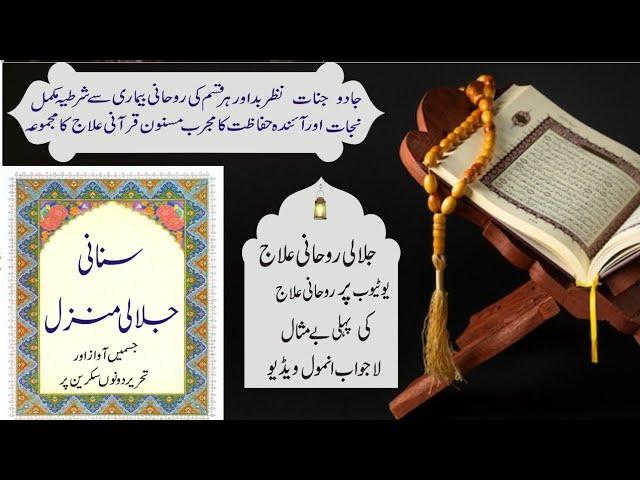 جادو جنات نظر بد اور ہر قسم کی روحانی بیماری سے شرطیہ مکمل
نجات اور آئندہ حفاظت کا مجرب مسنون قرآنی علاج کا مجموعہ
سنانی
جلالی منزل
جسمیں آواز اور
تحریر دونوں سکرین پر
جلالی روحانی علاج
یوٹیوب پر روحانی علاج
کی پہلی بے مثال
لاجواب انمول ویڈیو